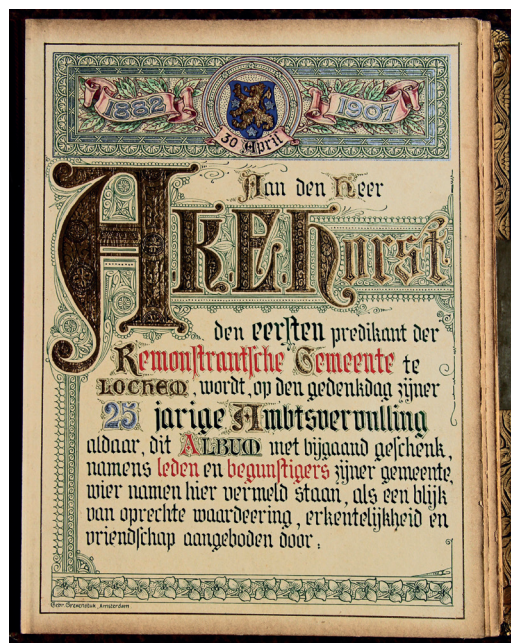 1882
1907
30 April
Aan den Heer
A.K.E. Horst
den eersten predikant der
Remonstrantsche Gemeente te
LOCHEM, wordt, op den gedenkdag zijner
25 jarige Ambtsvervulling
aldaar, dit ALBUM met bijgaand geschenk,
namens leden en begunstigers zijner gemeente,
wier namen hier vermeld staan, als een blijk
van oprechte waardeering, erkentelijkheid en
vriendschap aangeboden door:
Amsterdam